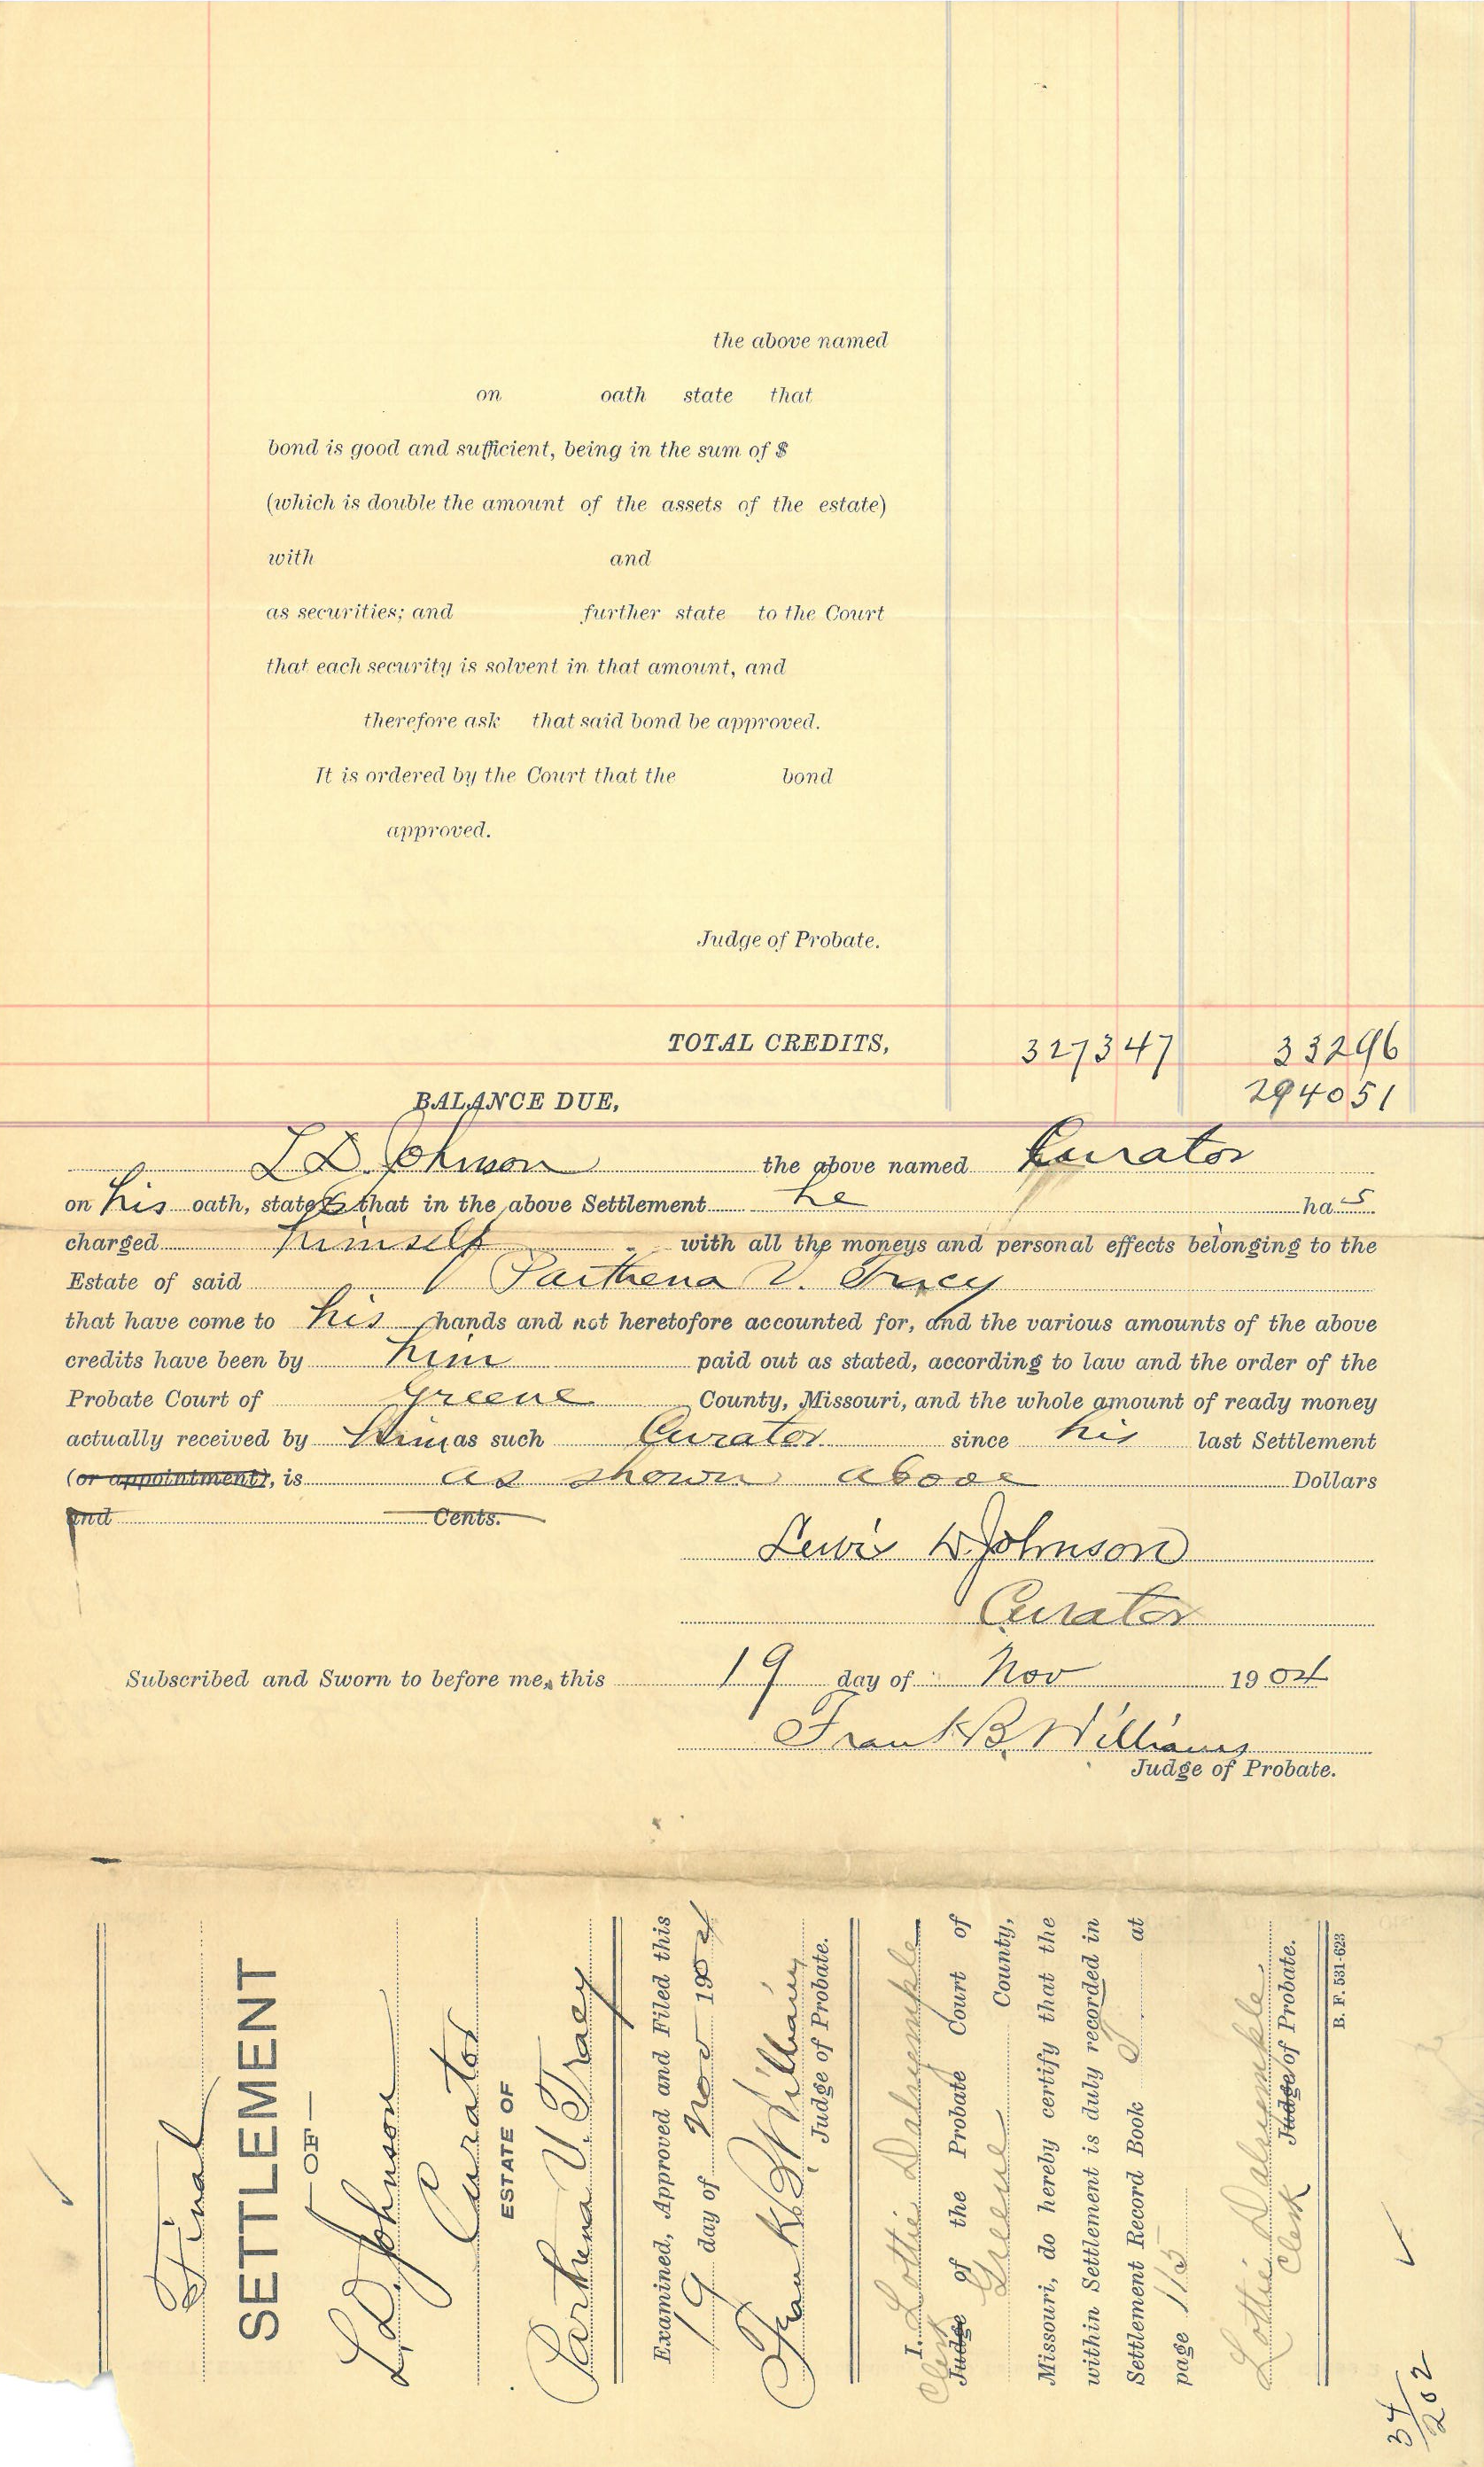 the above named
on oath state that
bond is good and sufficient, being in the sum of $
(which is double the amount of the assets of the estate)
with and
as securities; and further state to the Court
that each security is solvent in that amount, and
therefore ask that said bond be approved.
It is ordered by the Court that the bond
approved.
Judge of Probate.
TOTAL CREDITS, 3273 47 332 96
BALANCE DUE, 2940 51
L D. Johnson the above named Curator
on his oath, states that in the above Settlement he has
charged himself with all the moneys and personal effects belonging to the
Estate of said Parthena V. Tracy
that have come to his hands and not heretofore accounted for, and the various amounts of the above
credits have been by him paid out as stated, according to law and the order of the
Probate Court of Greene County, Missouri, and the whole amount of ready money
actually received by him as such Curator since his last Settlement
(or appointment), is as shown above Dollars
and Cents.
Lewis D. Johnson
Curator
Subscribed and Sworn to before me, this 19 day of Nov 1904
Frank B. Williams
Judge of Probate.
Final
SETTLEMENT
— OF —
L. D. Johnson
Curator
ESTATE OF
Parthena V. Tracy
Examined, Approved and Filed this
19 day of Nov 1904
Frank B. Williams
Judge of Probate.
I, Lottie Dalrymple
Clerk Judge of the Probate Court of
Greene County,
Missouri, do hereby certify that the
within Settlement is duly recorded in
Settlement Record Book at
page 115
Lottie Dalrymple
Clerk Judge of Probate.
B. F. 531-623
34/202